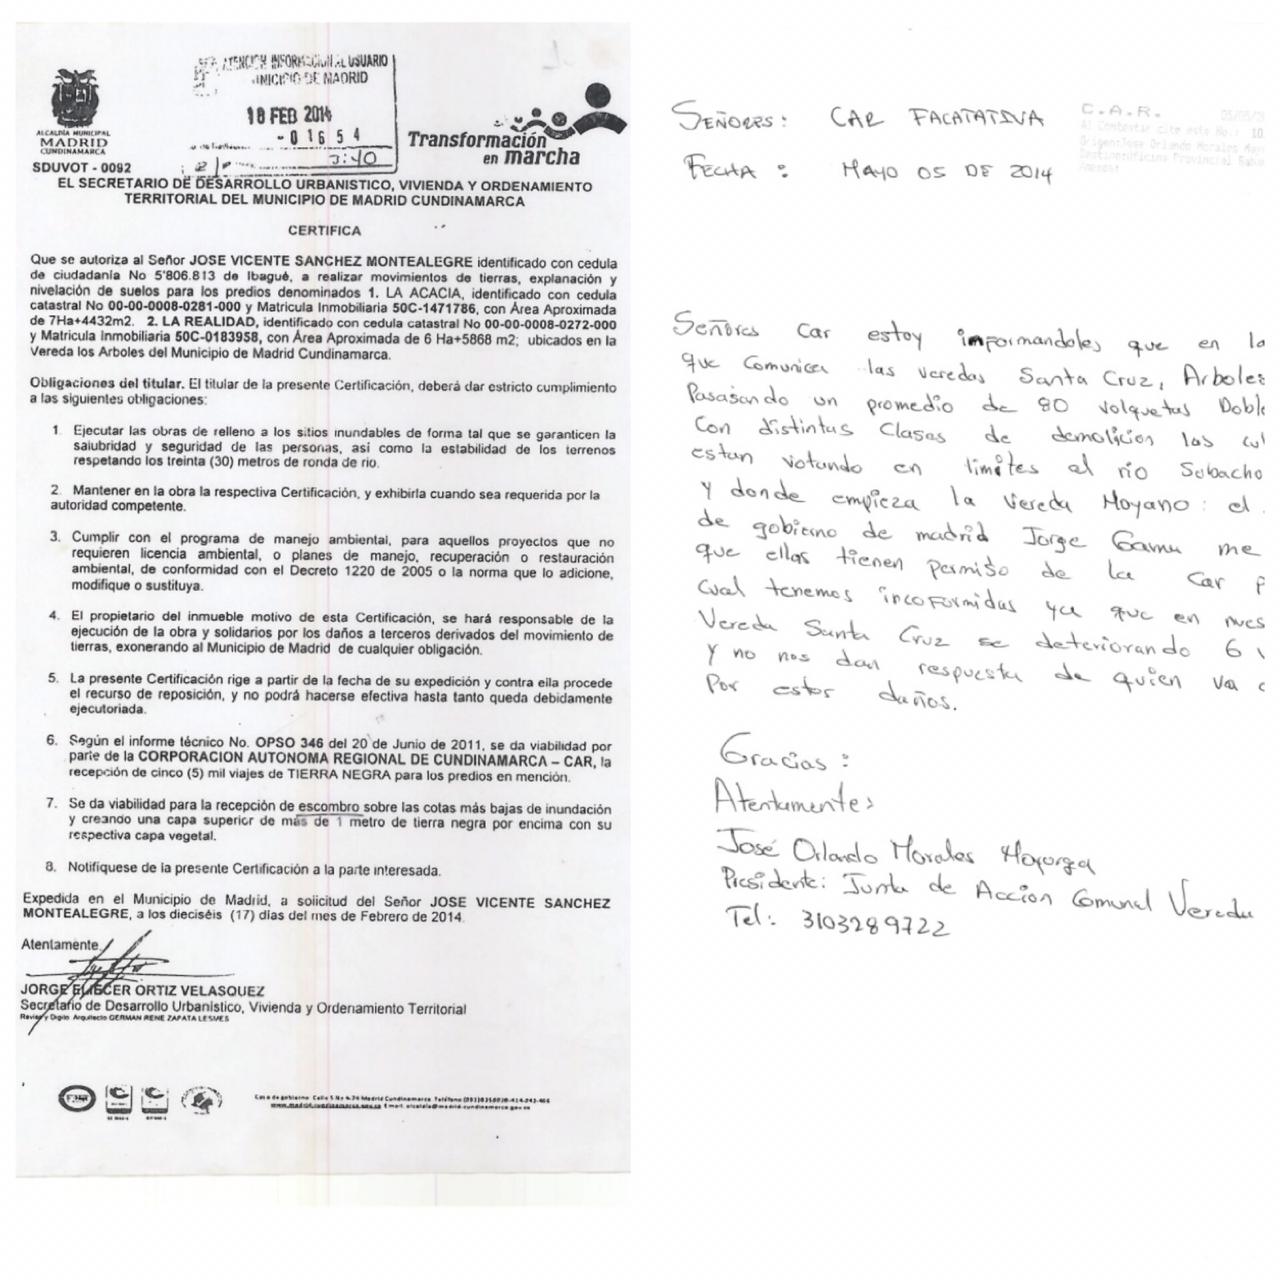 ATENCION INFORMACION AL USUARIO
MUNICIPIO DE MADRID
18 FEB 2014
- 0 1 6 5 4
3:40
ALCALDÍA MUNICIPAL
MADRID
CUNDINAMARCA
SDUVOT - 0092
Transformación
en marcha
EL SECRETARIO DE DESARROLLO URBANISTICO, VIVIENDA Y ORDENAMIENTO
TERRITORIAL DEL MUNICIPIO DE MADRID CUNDINAMARCA
CERTIFICA
Que se autoriza al Señor JOSE VICENTE SANCHEZ MONTEALEGRE identificado con cedula
de ciudadanía No 5'806.813 de Ibagué, a realizar movimientos de tierras, explanación y
nivelación de suelos para los predios denominados 1. LA ACACIA, identificado con cedula
catastral No 00-00-0008-0281-000 y Matricula Inmobiliaria 50C-1471786, con Área Aproximada
de 7Ha+4432m2. 2. LA REALIDAD, identificado con cedula catastral No 00-00-0008-0272-000
y Matricula Inmobiliaria 50C-0183958, con Área Aproximada de 6 Ha+5868 m2; ubicados en la
Vereda los Arboles del Municipio de Madrid Cundinamarca.
Obligaciones del titular. El titular de la presente Certificación, deberá dar estricto cumplimiento
a las siguientes obligaciones:
1. Ejecutar las obras de relleno a los sitios inundables de forma tal que se garanticen la
salubridad y seguridad de las personas, así como la estabilidad de los terrenos
respetando los treinta (30) metros de ronda de río.
2. Mantener en la obra la respectiva Certificación, y exhibirla cuando sea requerida por la
autoridad competente.
3. Cumplir con el programa de manejo ambiental, para aquellos proyectos que no
requieren licencia ambiental, o planes de manejo, recuperación o restauración
ambiental, de conformidad con el Decreto 1220 de 2005 o la norma que lo adicione,
modifique o sustituya.
4. El propietario del inmueble motivo de esta Certificación, se hará responsable de la
ejecución de la obra y solidarios por los daños a terceros derivados del movimiento de
tierras, exonerando al Municipio de Madrid de cualquier obligación.
5. La presente Certificación rige a partir de la fecha de su expedición y contra ella procede
el recurso de reposición, y no podrá hacerse efectiva hasta tanto queda debidamente
ejecutoriada.
6. Según el informe técnico No. OPSO 346 del 20 de Junio de 2011, se da viabilidad por
parte de la CORPORACION AUTONOMA REGIONAL DE CUNDINAMARCA – CAR, la
recepción de cinco (5) mil viajes de TIERRA NEGRA para los predios en mención.
7. Se da viabilidad para la recepción de escombro sobre las cotas más bajas de inundación
y creando una capa superior de más de 1 metro de tierra negra por encima con su
respectiva capa vegetal.
8. Notifíquese de la presente Certificación a la parte interesada.
Expedida en el Municipio de Madrid, a solicitud del Señor JOSE VICENTE SANCHEZ
MONTEALEGRE, a los dieciséis (17) días del mes de Febrero de 2014.
Atentamente,
JORGE ELIECER ORTIZ VELASQUEZ
Secretario de Desarrollo Urbanístico, Vivienda y Ordenamiento Territorial
Reviso y Digito Arquitecto GERMAN RENE ZAPATA LESMES
Casa de gobierno Calle 5 No 4-74 Madrid Cundinamarca
www.madrid-cundinamarca.gov.co E mail: alcaldia@madrid-cundinamarca.gov.co
SEÑORES: CAR FACATATIVA
FECHA: MAYO 05 DE 2014
C.A.R. 05/05/2
Al Contestar cite este No.: 10
Origen:Jose Orlando Morales May
Destino:Oficina Provincial Saba
Anexos:
Señores Car estoy imformandoles que en la
que Comunica las veredas Santa Cruz, Arboles
Pasasando un promedio de 80 volquetas Doble
Con distintas Clases de demolicion las cu
estan votando en limites al rio Subacho
y donde empieza la Vereda Moyano: el
de gobierno de madrid Jorge Gamu me
que ellos tienen permiso de la Car p
cual tenemos incoformidas ya que en nues
Vereda Santa Cruz se deteriorando 6
y no nos dan respuesta de quien va
Por estos daños.
Gracias:
Atentamente:
José Orlando Morales Mayorga
Presidente: Junta de Acción Comunal Vereda
Tel: 3103289722